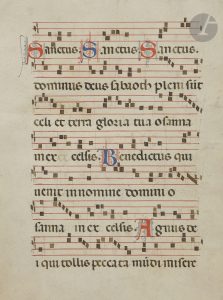 Sanctus. Sanctus. Sanctus.
dominus deus sabaoth pleni sūt
celi et terra gloria tua osanna
in ex celsis Benedictus qui
uenit in nomine domini o
sanna in ex celsis. Agnus de
i qui tollis peccata mūdi misere